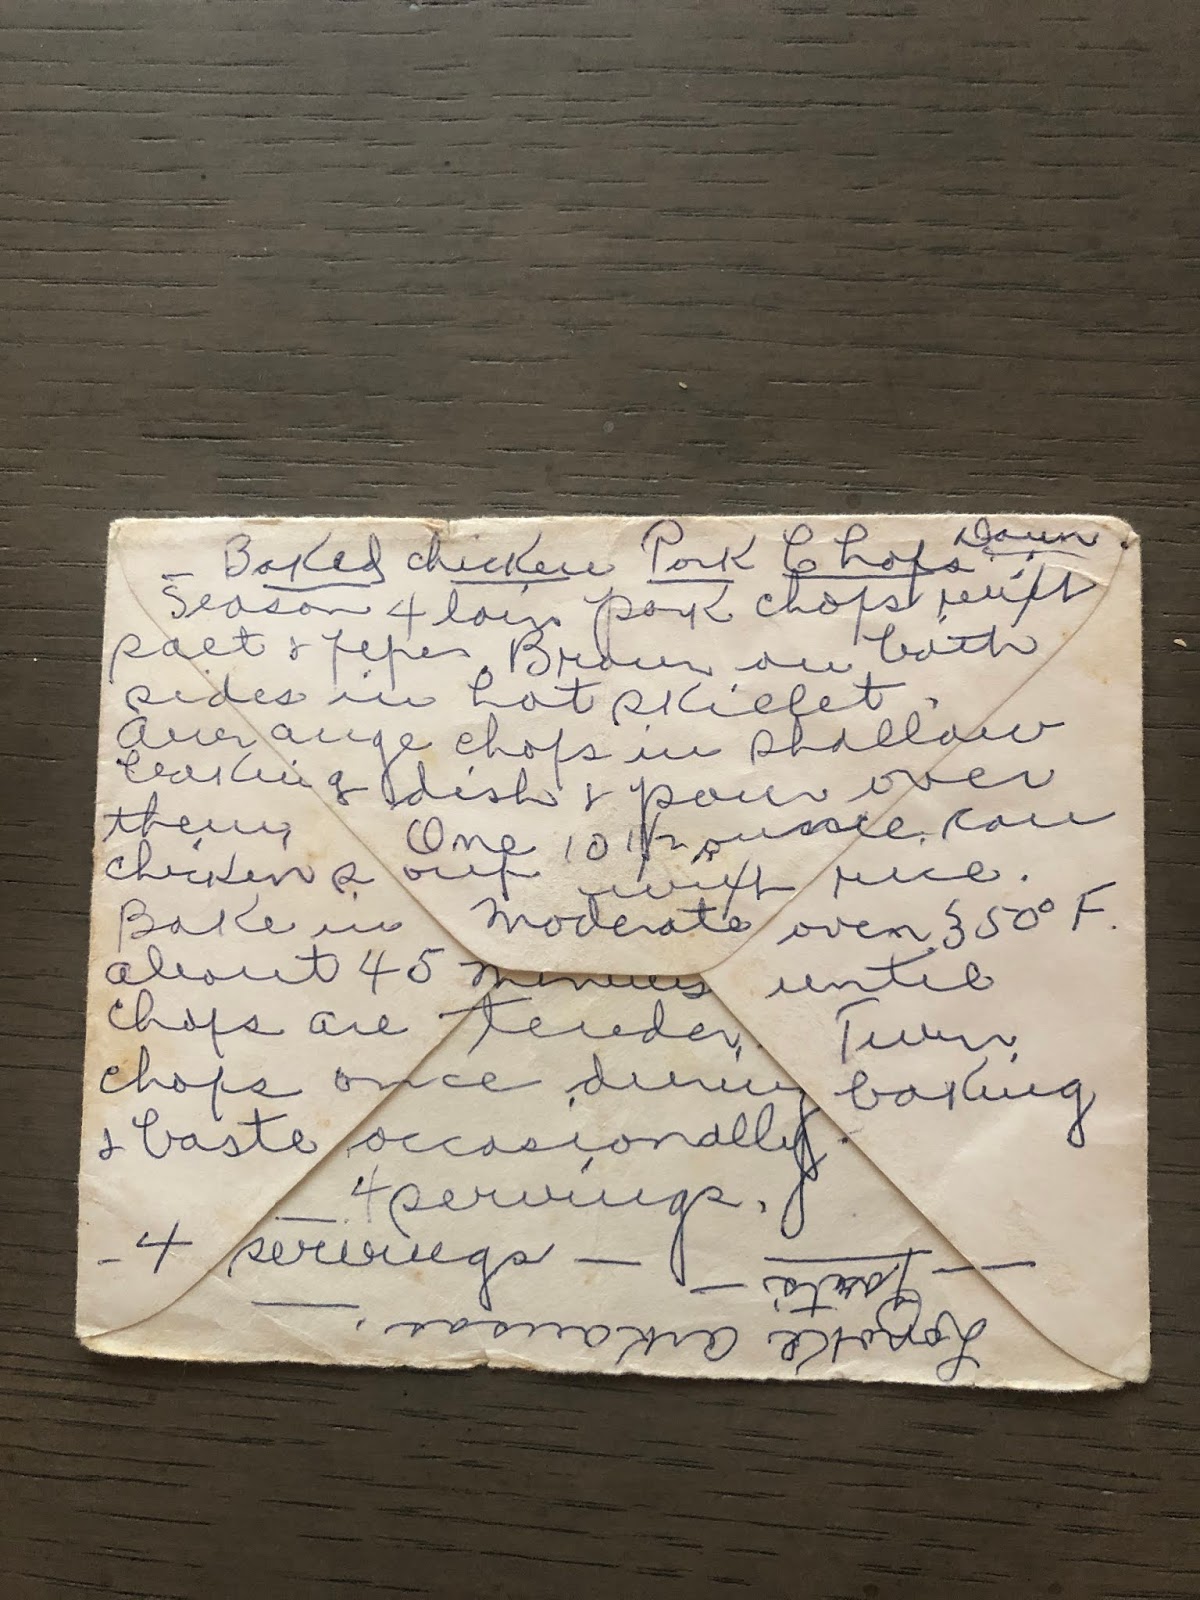 Baked chicken Pork Chops Dawn.
Season 4 loin pork chops with
salt & peper. Brown on both
sides in hot skillet.
Aurrange chops in shallow
baking dish & pour over
them, One 10 1/2 ounce can
chicken soup with rice.
Bake in Moderate oven 350° F.
about 45 minutes until
chops are tender. Turn
chops once during baking
& baste occasionally.
4 servings.
- 4 servings -
Lonoke Arkansas.